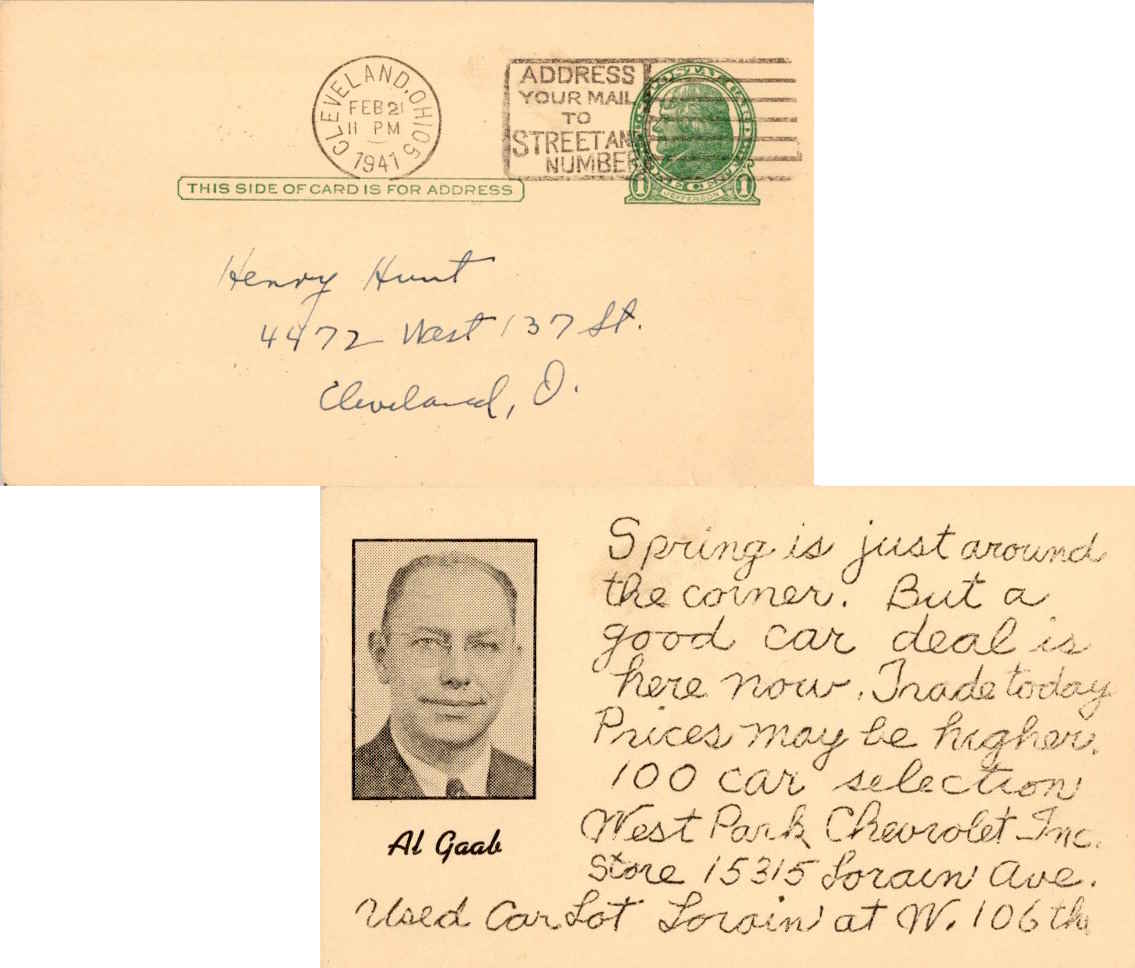 CLEVELAND, OHIO 5
FEB 21
11 PM
1941
ADDRESS
YOUR MAIL
TO
STREET AND
NUMBER
POSTAL CARD
ONE CENT
1 JEFFERSON 1
THIS SIDE OF CARD IS FOR ADDRESS
Henry Hunt
4472 West 137 St.
Cleveland, O.
Spring is just around
the corner. But a
good car deal is
here now. Trade today
Prices may be higher.
100 car selection
West Park Chevrolet Inc.
Store 15315 Lorain Ave.
Used Car Lot Lorain at W. 106th
Al Gaab